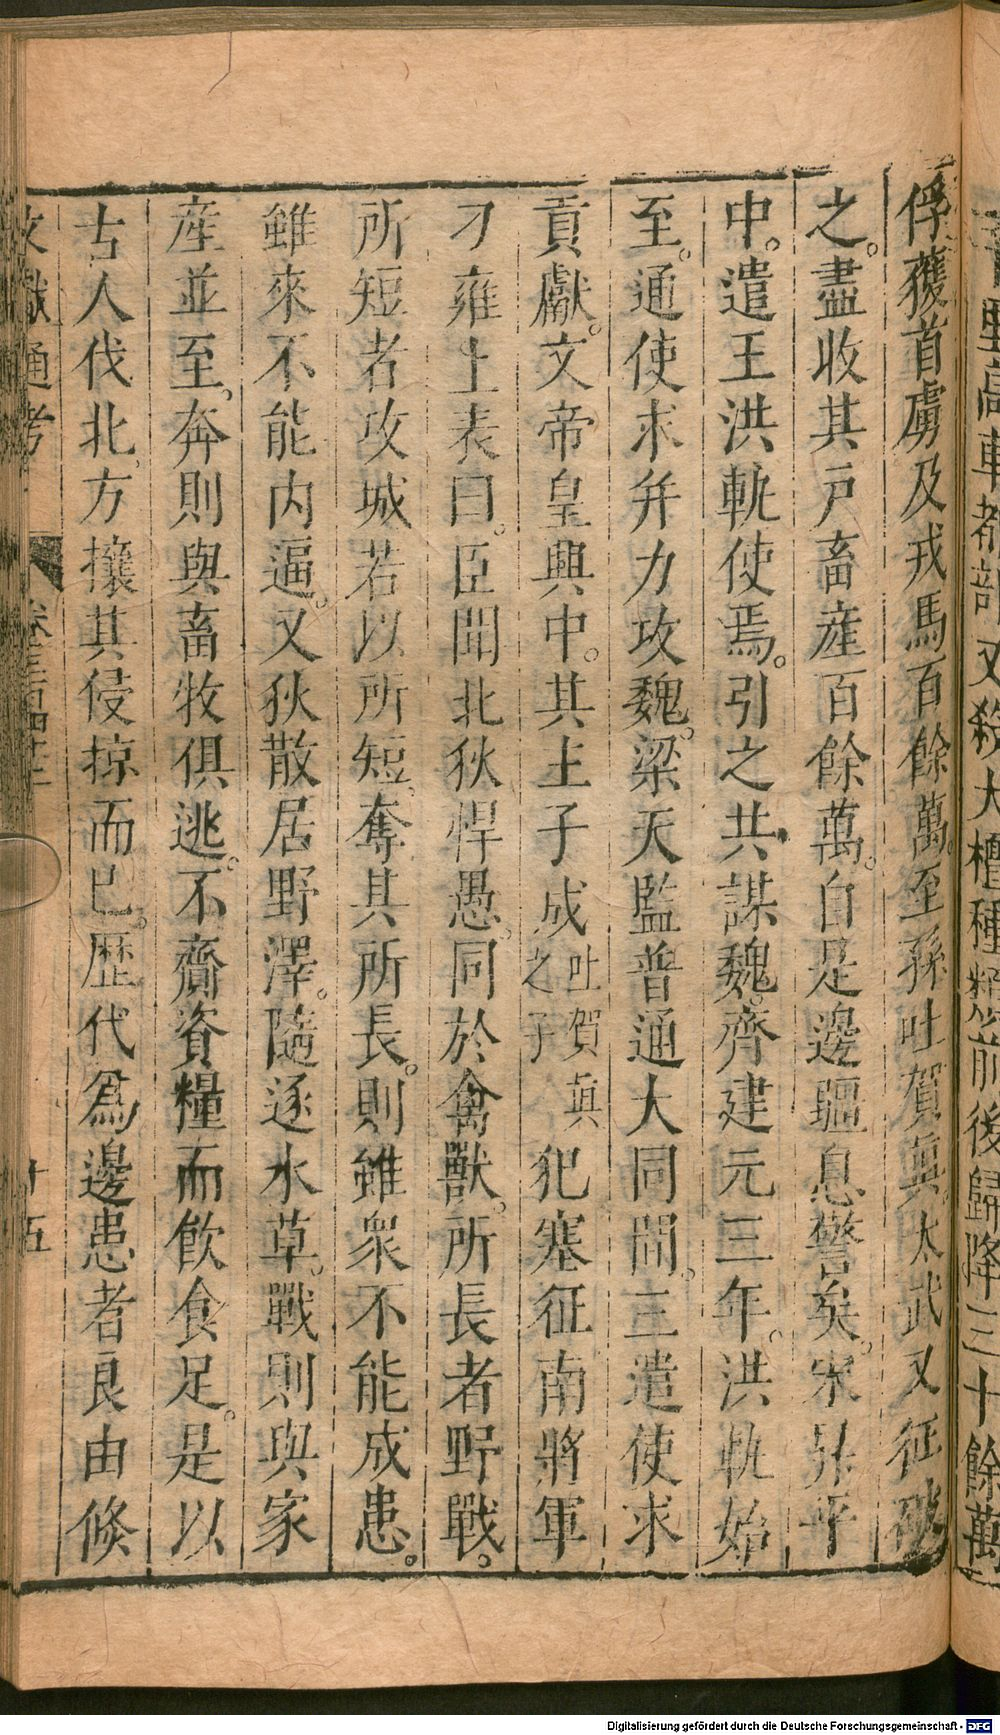 高車諸部又殺大檀種類前後歸降三十餘萬
俘獲首虜及戎馬百餘萬至孫吐賀真太武又征破
之盡收其戶畜產百餘萬自是邊疆息警矣宋昇平
中遣王洪軌使焉引之共謀魏齊建元三年洪軌始
至通使求并力攻魏梁天監普通大同間三遣使求
貢獻文帝皇興中其主子成吐賀真之子犯塞征南將軍
刁雍上表曰臣聞北狄悍愚同於禽獸所長者野戰
所短者攻城若以所短奪其所長則雖衆不能成患
雖來不能内逼又狄散居野澤隨逐水草戰則與家
產並至奔則與畜牧俱逃不齎資糧而飲食足是以
古人伐北方攘其侵掠而已歷代爲邊患者良由倐
文獻通考 卷三百四十二 十五
Digitalisierung gefördert durch die Deutsche Forschungsgemeinschaft - DFG